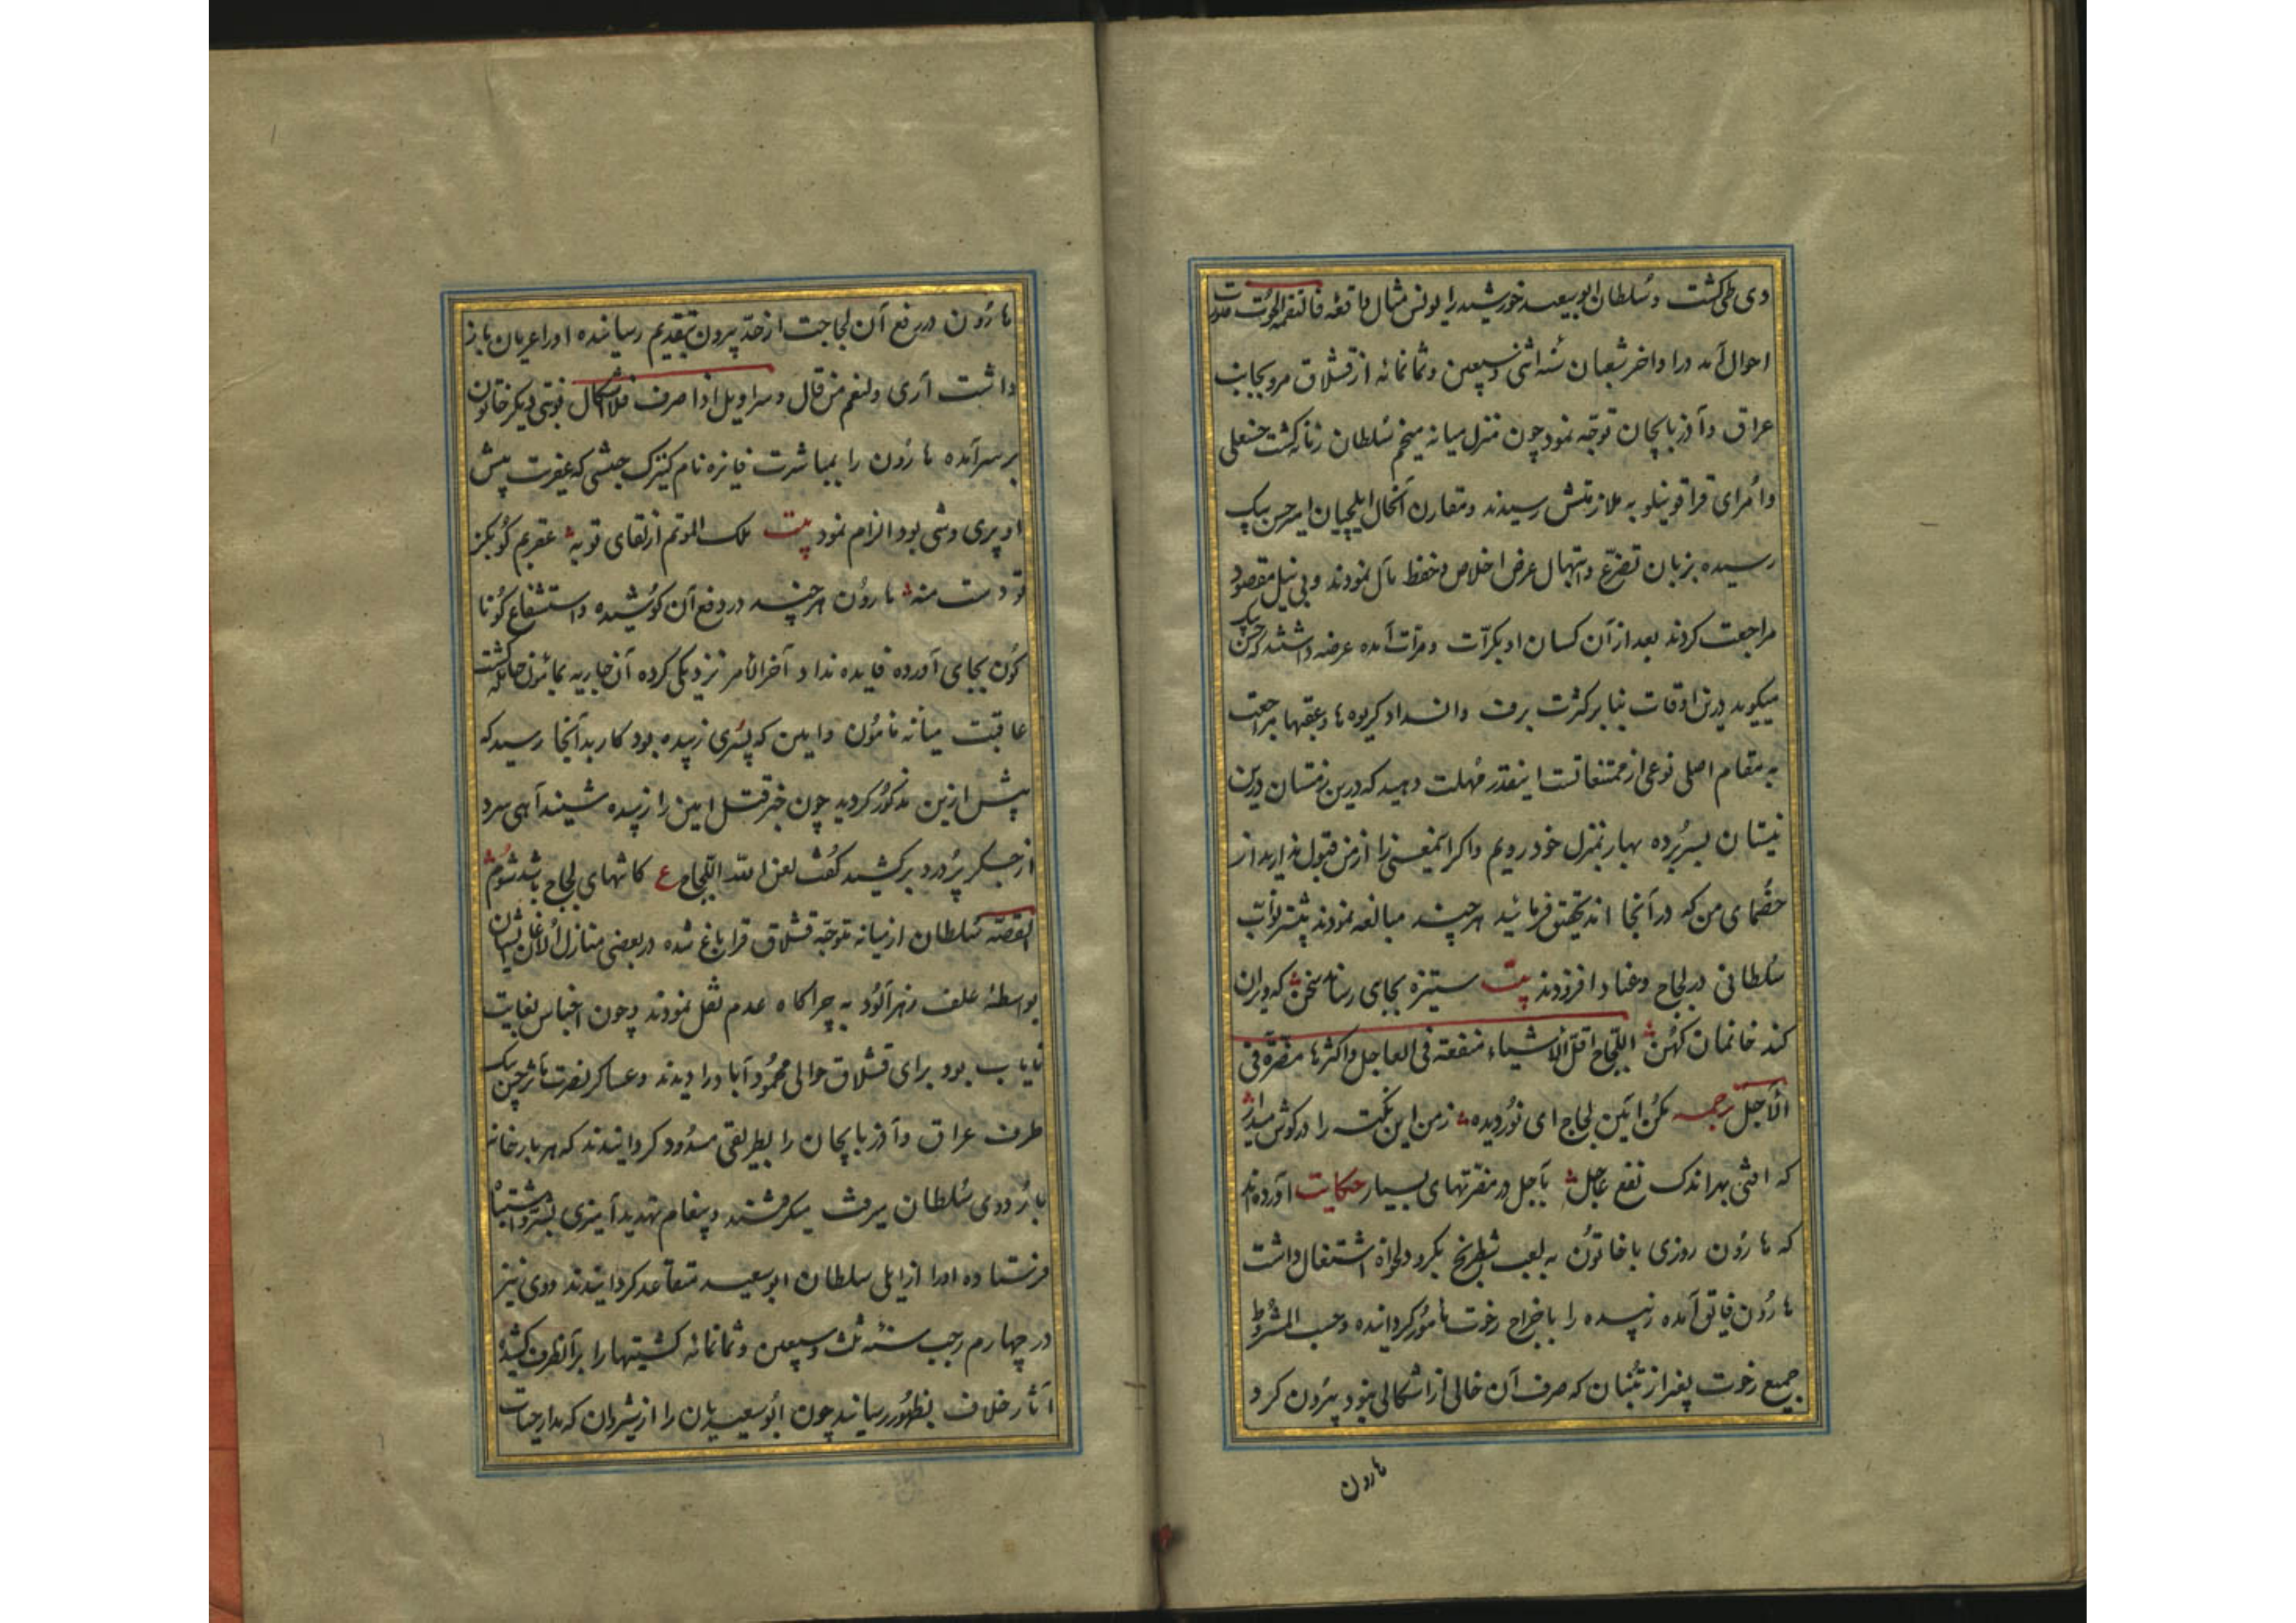 دی طی کشت و سلطان ابو سعید خورشید را یونس مثال واقعه فالتقمه الحوت
احوال آمد در اواخر شعبان سنه اثنی و سبعین و ثمانمائه از قشلاق مرو بجانب
عراق و آذربایجان توجه نمود چون منزل میانه مخیم سلطان زمانه کشت حسنعلی
و امرای قراقوینلو به ملازمتش رسیدند و مقارن آنحال ایلچیان امیر حسن بیک
رسیده بزبان تضرع و ابتهال عرض اخلاص و حفظ مآل نمودند و بی نیل مقصود
مراجعت کردند بعد از آن کسان او بکرات و مرات آمده عرضه داشتند که حسن بیک
میکوید درین اوقات بنابر کثرت برف و انسداد کریوه ها و عقبها مراجعت
به مقام اصلی نوعی از ممتنعاتست اینقدر مهلت دهید که درین زمستان درین
نیستان بسر برده بهار بمنزل خود رویم و اکر اینمعنی را از من قبول ندارید از
خصمای من که در آنجا اند تحقیق فرمائید هر چند مبالغه نمودند بیشتر نواب
سلطانی در لجاج و عناد افزودند بیت ستیزه بجای رساند سخن که ویران
کند خانمان کهن اللجاج اقل الاشیاء منفعة فی العاجل و اکثرها مضرة فی
الآجل ترجمه مکن آیین لجاج ای نور دیده ز من این نکته را در کوش میدار
که افتی بهر اندک نفع عاجل بآجل در مضرتهای بسیار حکایت آورده اند
که هارون روزی با خاتون به لعب شطرنج بکرو دلخواه اشتغال داشت
هارون فایق آمده زبیده را باخراج رخوت مامور کردانیده و حسب المشروط
جمیع رخوت بغیر از تنبان که صرف آن خالی از اشکالی نبود بیرون کرد
هارون
هارون در رفع آن لجاجت از حد بیرون بتقدیم رسانیده او را عریان باز
داشت آری و لنعم من قال و سراویل اذا صرف فلا اشکال نوبتی دیکر خاتون
بر سر آمده هارون را بمباشرت فایزه نام کنیزک حبشی که عفریت پیش
او پری وشی بود الزام نمود بیت ملک الموتم از لقای تو به عقربم کو بکز
تو دست منه هارون هر چند در دفع آن کوشیده و استشفاع کونا
کون بجای آورده فایده نداد آخر الامر نزدیکی کرده آن جاریه بمامون حامله کشت
عاقبت میانه مامون و امین که پسری زبیده بود کار بدآنجا رسید که
پیش ازین مذکور کردید چون خبر قتل امین را زبیده شنید آهی سرد
از جکر پر درد برکشید کفت لعن الله اللجاج ع کاشهای لجاج باشد شوم
القصه سلطان از میانه متوجه قشلاق قراباغ شده در بعضی منازل الاغان ایشان
بواسطهٔ علف زهرآلود به چراکاه عدم نقل نمودند و چون اجناس بغایت
نایاب بود برای قشلاق حوالی محمودآباد را دیدند و عساکر نصرت مآثر حسن بیک
طرف عراق و آذربایجان را بطریقی مسدود کردانیدند که هر بارخانه
باردوی سلطان میرفت میکرفتند و پیغام تهدید آمیزی
فرستاده او را از ایلی سلطان ابو سعید متقاعد کردانیدند و وی نیز
در چهارم رجب سنه ثلث و سبعین و ثمانمائه کشتیها را بر آنطرف کشیده
آثار خلاف بظهور رسانید چون ابو سعیدیان را از شیروان که مدار حیات